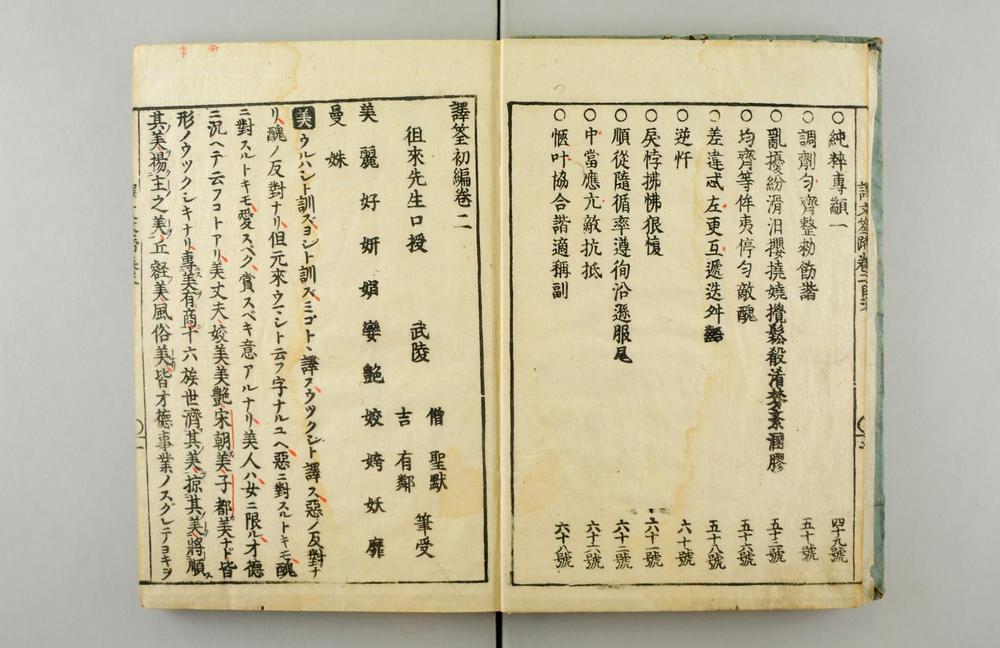 ○純粹專顓一 四十九號
○調劑勻齊整勑飭諧 五十號
○亂擾紛滑汨攖撓嬈攪鬆殽淆棼紊溷膠 五十三號
○均齊等侔夷停勻敵醜 五十六號
○差違忒左更互遞迭舛 五十八號
○逆忤 六十號
○戾悖拂怫狠愎 六十一號
○順從隨循率遵徇沿遜服尾 六十二號
○中當應亢敵抗抵 六十三號
○愜叶協合諧適稱副 六十八號
譯筌初編卷二
徂來先生口授 武陵 僧 聖默
吉 有鄰 筆受
美 麗 好 妍 娟 孌 艷 姣 姱 妖 靡
曼 姝
美 ウルハシト訓ズヨシト訓ズミゴト、譯スウツクシト譯ス惡ノ反對ナ
リ醜ノ反對ナリ但元來ウマシト云フ字ナルユヘ惡ニ對スルトキモ醜
ニ對スルトキモ愛スベク賞スベキ意アルナリ美人ハ女ニ限ル才德
ニ沉ヘテ云フコトアリ美丈夫姣美美艷宋朝美子都美ナド皆
形ノウツクシキナリ專美有商十六族世濟其美掠其美將順
其美揚主之美丘壑美風俗美皆才德事業ノスグレテヨキヲ